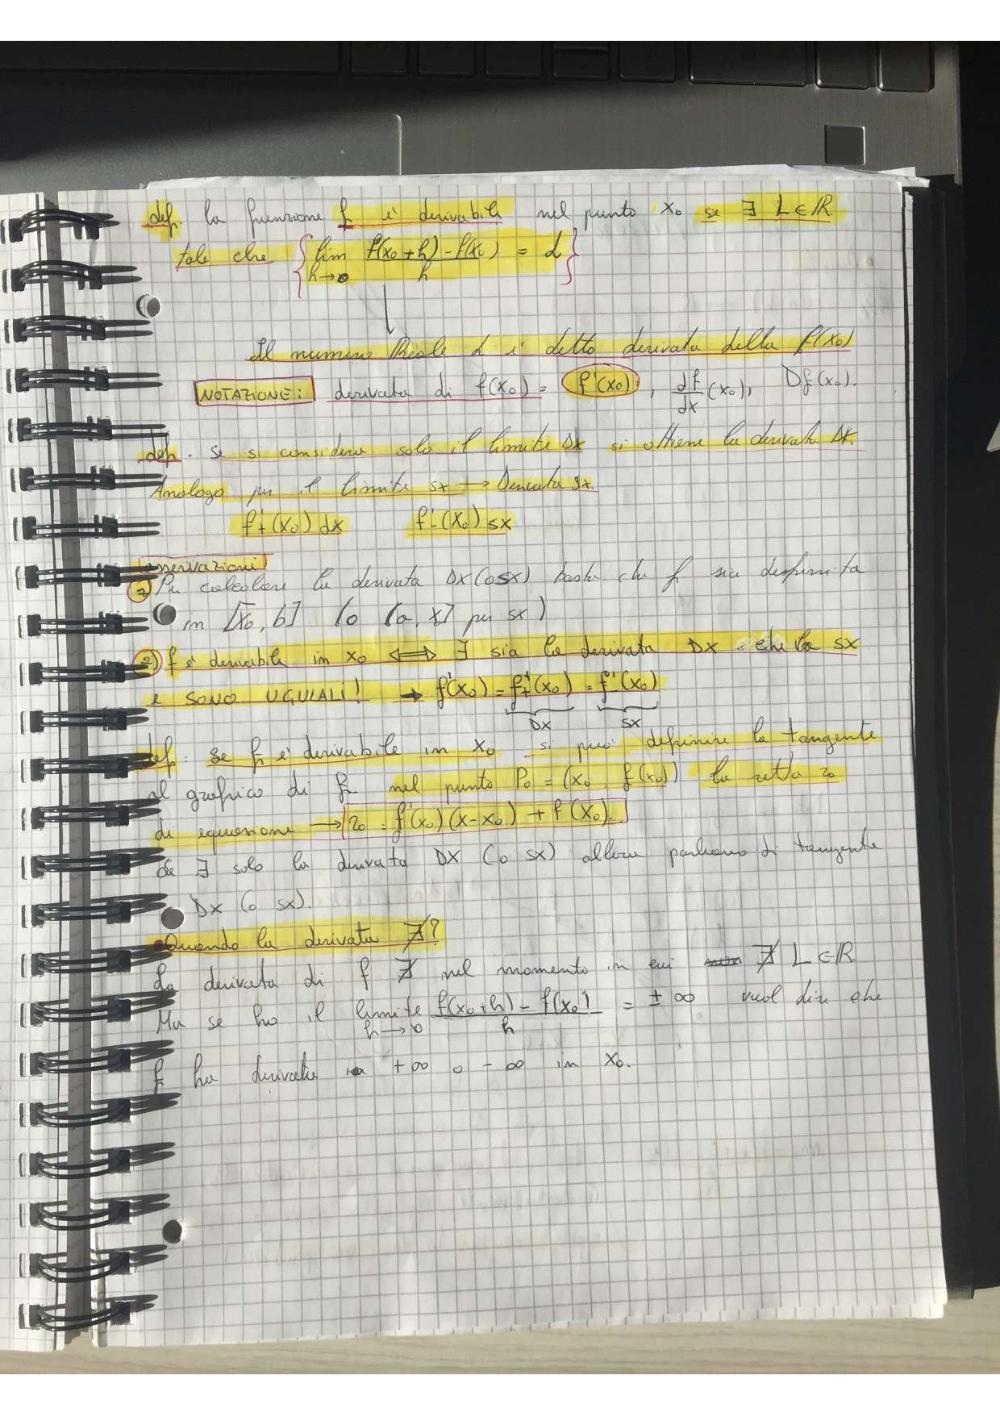 def. la funzione f è derivabile nel punto x₀ se ∃ L ∈ ℝ
tale che { lim h→0 f(x₀+h)-f(x₀) / h = L }
Il numero Reale L è detto derivata della f(x₀)
NOTAZIONE: derivata di f(x₀) = f'(x₀), df/dx (x₀), Df(x₀).
def. se si considera solo il limite Dx si ottiene la derivata Dx.
Analogo per il limite sx → Derivata sx.
f'₊(x₀) dx f'₋(x₀) sx
osservazioni
Per calcolare la derivata Dx (o sx) basta che f sia definita
in [x₀, b] (o (a, x] per sx)
2) f è derivabile in x₀ ⟺ ∃ sia la derivata DX che la sx
e SONO UGUALI! → f'(x₀) = f'₊(x₀) = f'₋(x₀)
DX SX
def. se f è derivabile in x₀ si può definire la tangente
al grafico di f nel punto P₀ = (x₀, f(x₀)) la retta r₀
di equazione → r₀ = f'(x₀)(x-x₀) + f(x₀).
Se ∃ solo la derivata DX (o sx) allora parliamo di tangente
Dx (o sx).
Quando la derivata ∄?
La derivata di f ∄ nel momento in cui ∄ L ∈ ℝ
Ma se ho il limite h→0 f(x₀+h) - f(x₀) / h = ± ∞ vuol dire che
f ha derivata +∞ o -∞ in x₀.